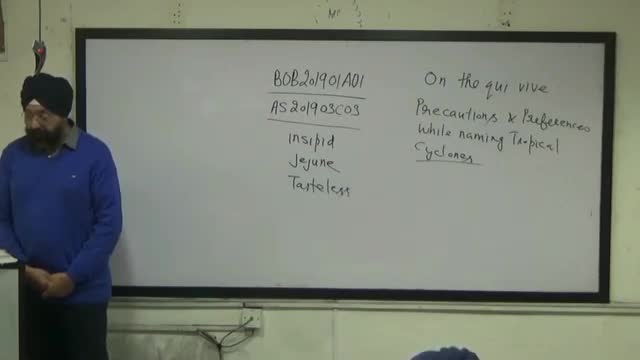 BOB201901A01
AS201903C03
insipid
Jejune
Tasteless
On the qui vive
Precautions & Preferences
While naming Tropical
Cyclones